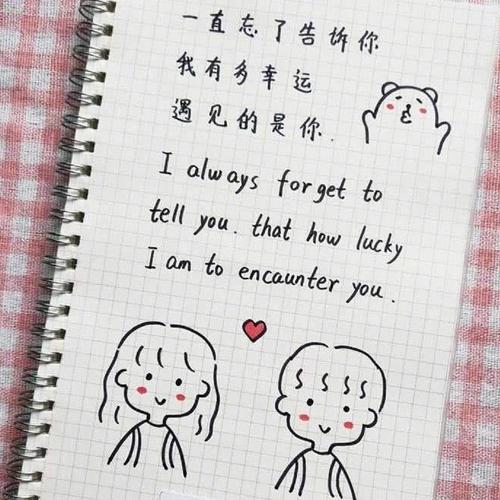 一直忘了告诉你
我有多幸运
遇见的是你.
I always forget to
tell you. that how lucky
I am to encaunter you.